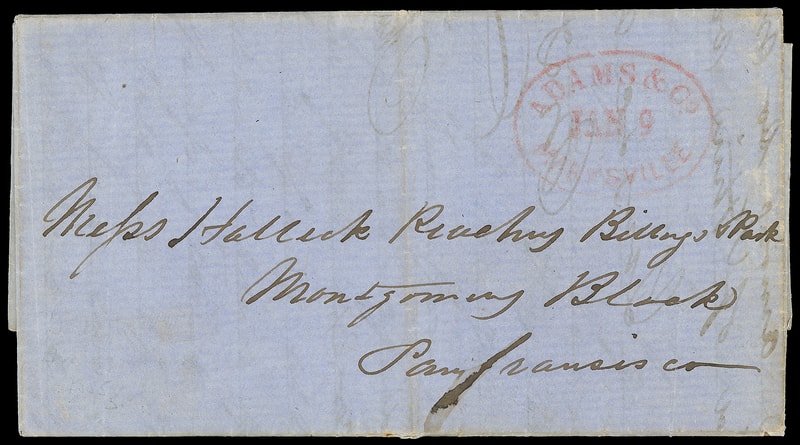 ADAMS & Co
JAN 9
Mess Halleck Peachy Billings & Park
Montgomery Block
San Francisco